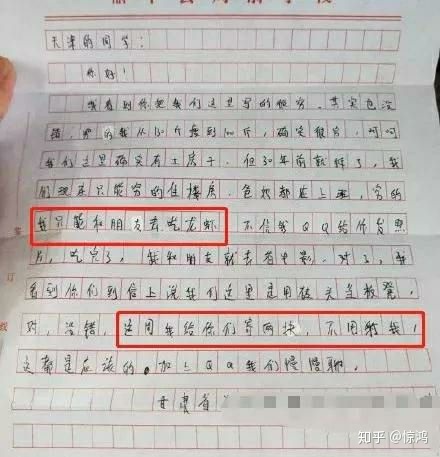 天津的同学:
你好!
我看到你把我们这里写的很穷,其实也没
错,穷的我从130斤瘦到100斤,确实很穷,呵呵
我们这里确实有土房子,但30年前就拆了,我
们现在只能穷的住楼房,都在上班,穷的
我只能和朋友去吃龙虾 不信我QQ给你发照
片,吃完了,我和朋友就去看电影,对了,我
看到你们到信上说我们这里是用破当板凳,
对,没错,这周我给你们寄两块,不用谢我!
这都是应该的。加上QQ我们慢慢聊。
甘肃省
订
线
知乎 @惊鸿